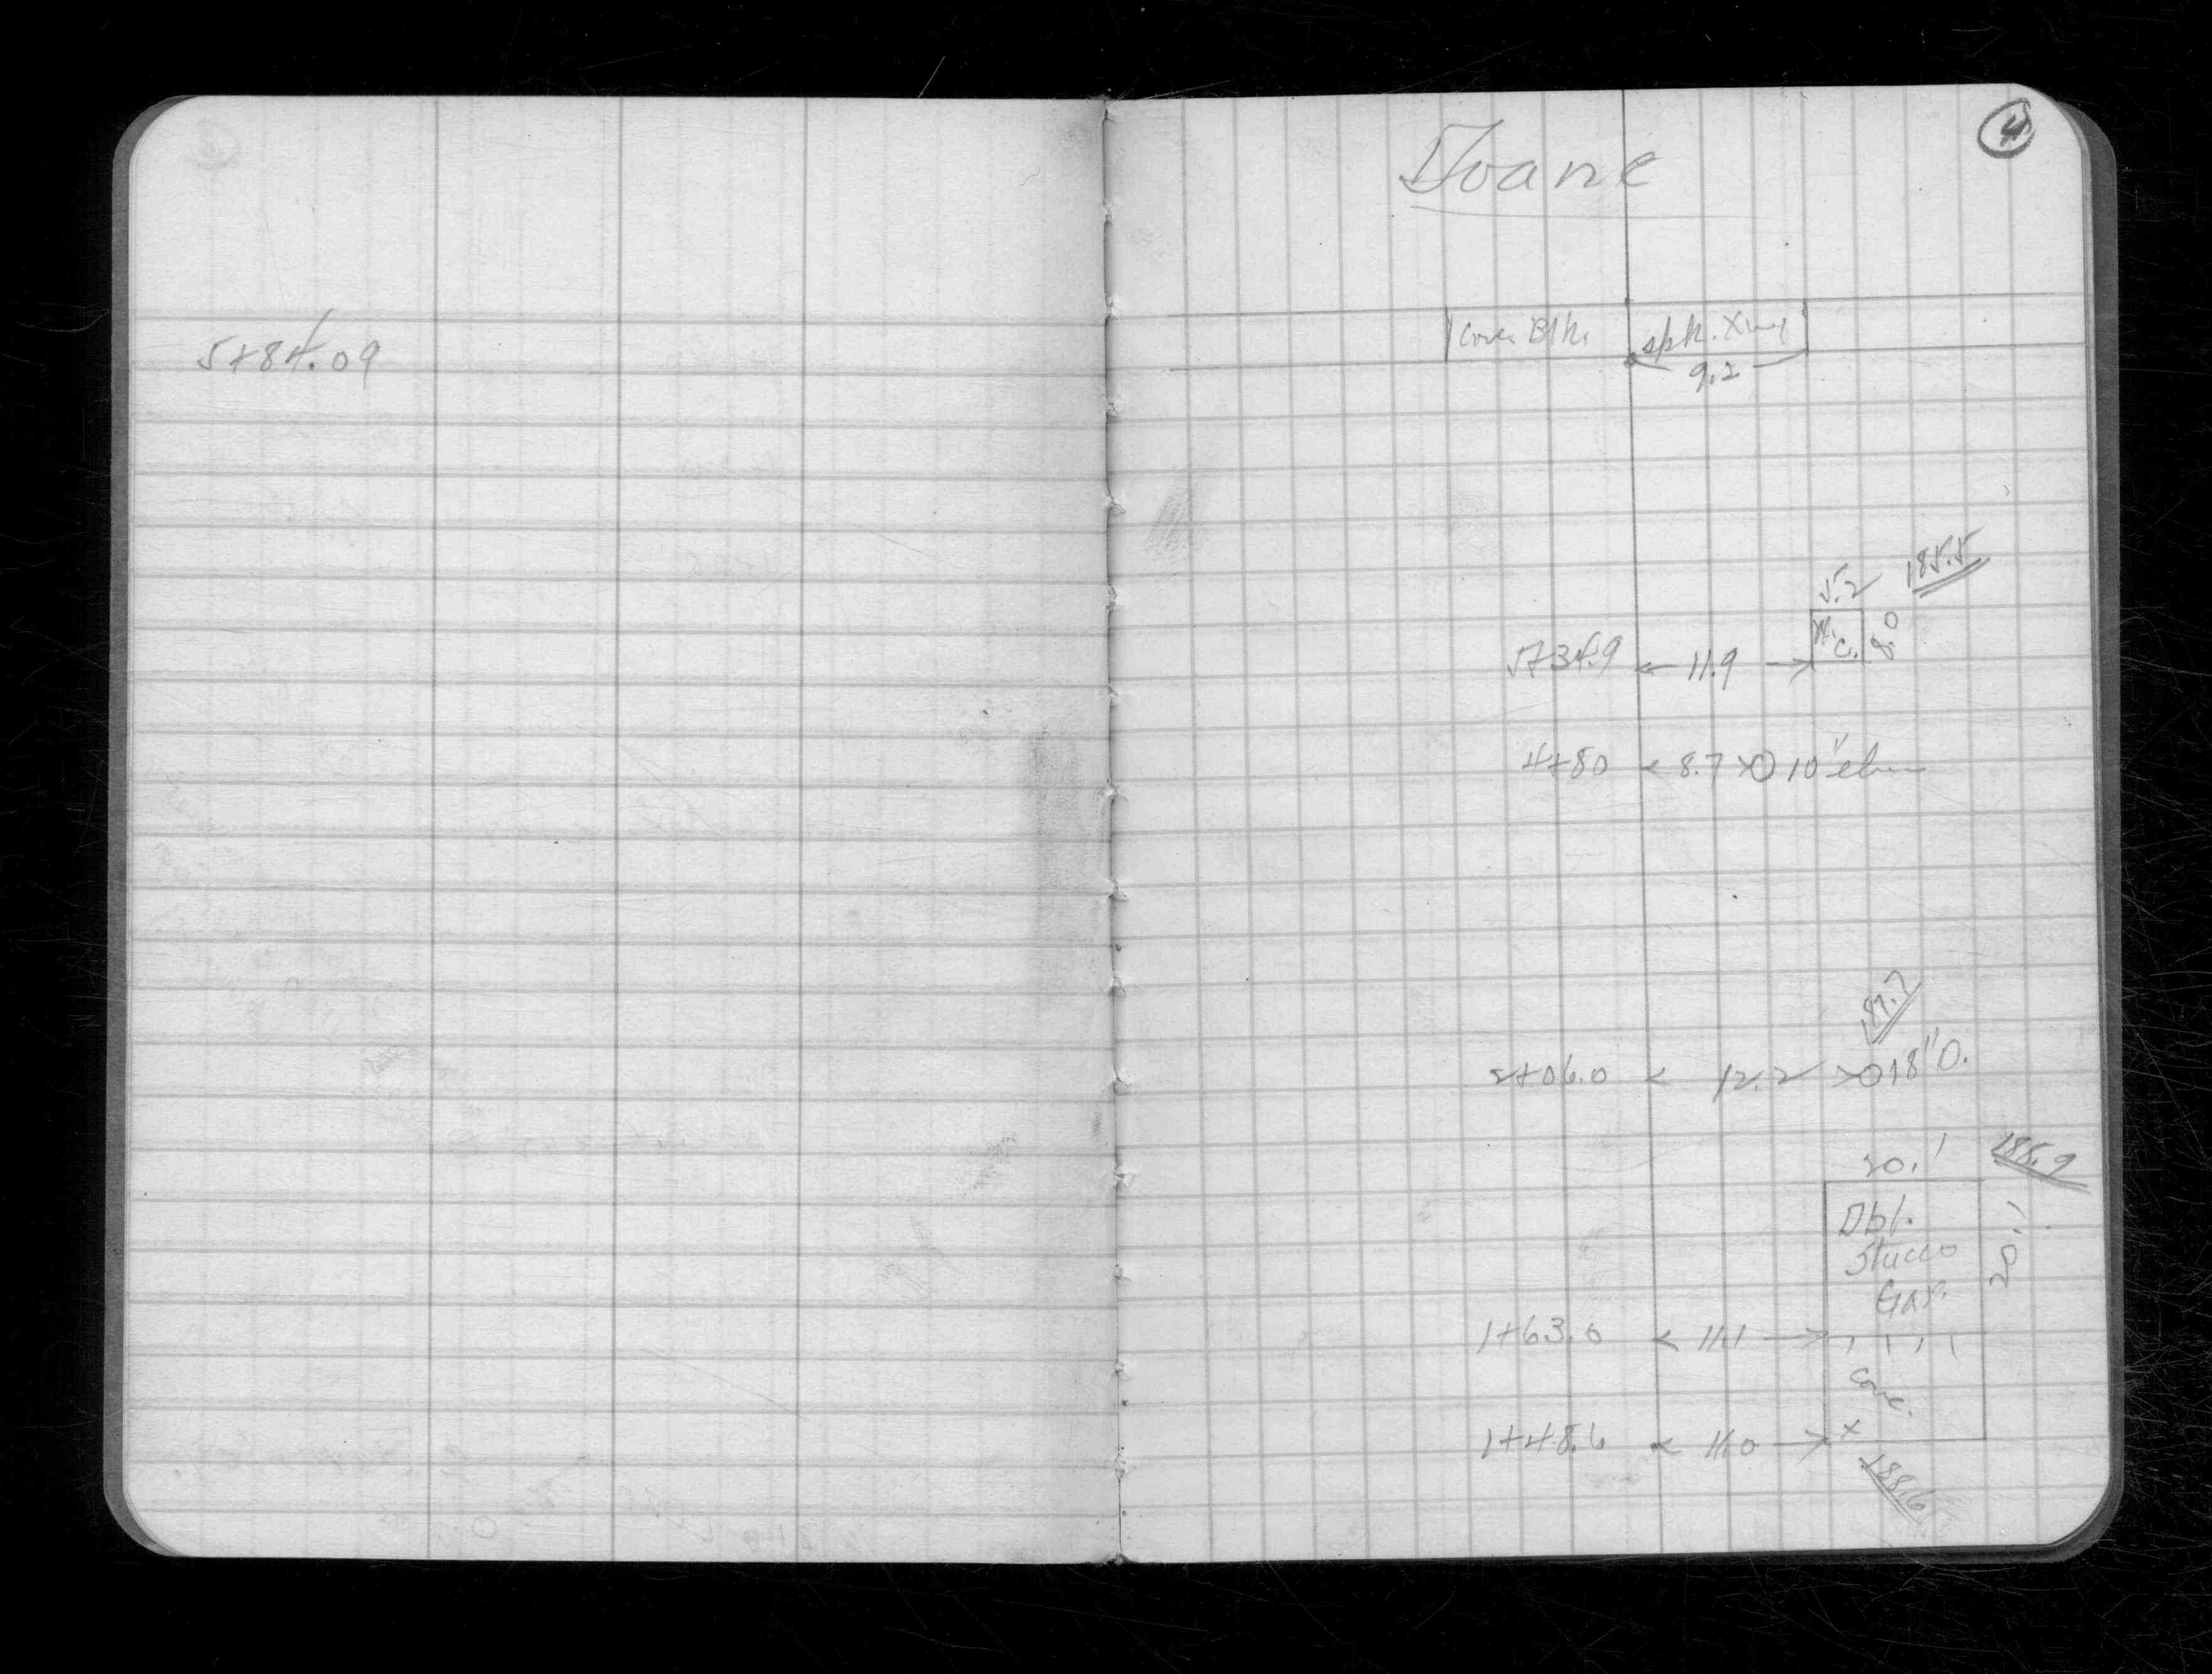 5+84.09
4
Doane
Conc. Blk. spk. Xing
9.2
185.5
5.2
W.C. 8.0
5+34.9 ← 11.9 →
4+80 < 8.7 > O 10" elm
187.7
2+06.0 < 12.2 > O 18" O.
20.1 188.9
Dbl.
Stucco
Gar.
20.1
1+63.0 < 11.1 →
Conc.
1+48.6 < 11.0 → x
188.6